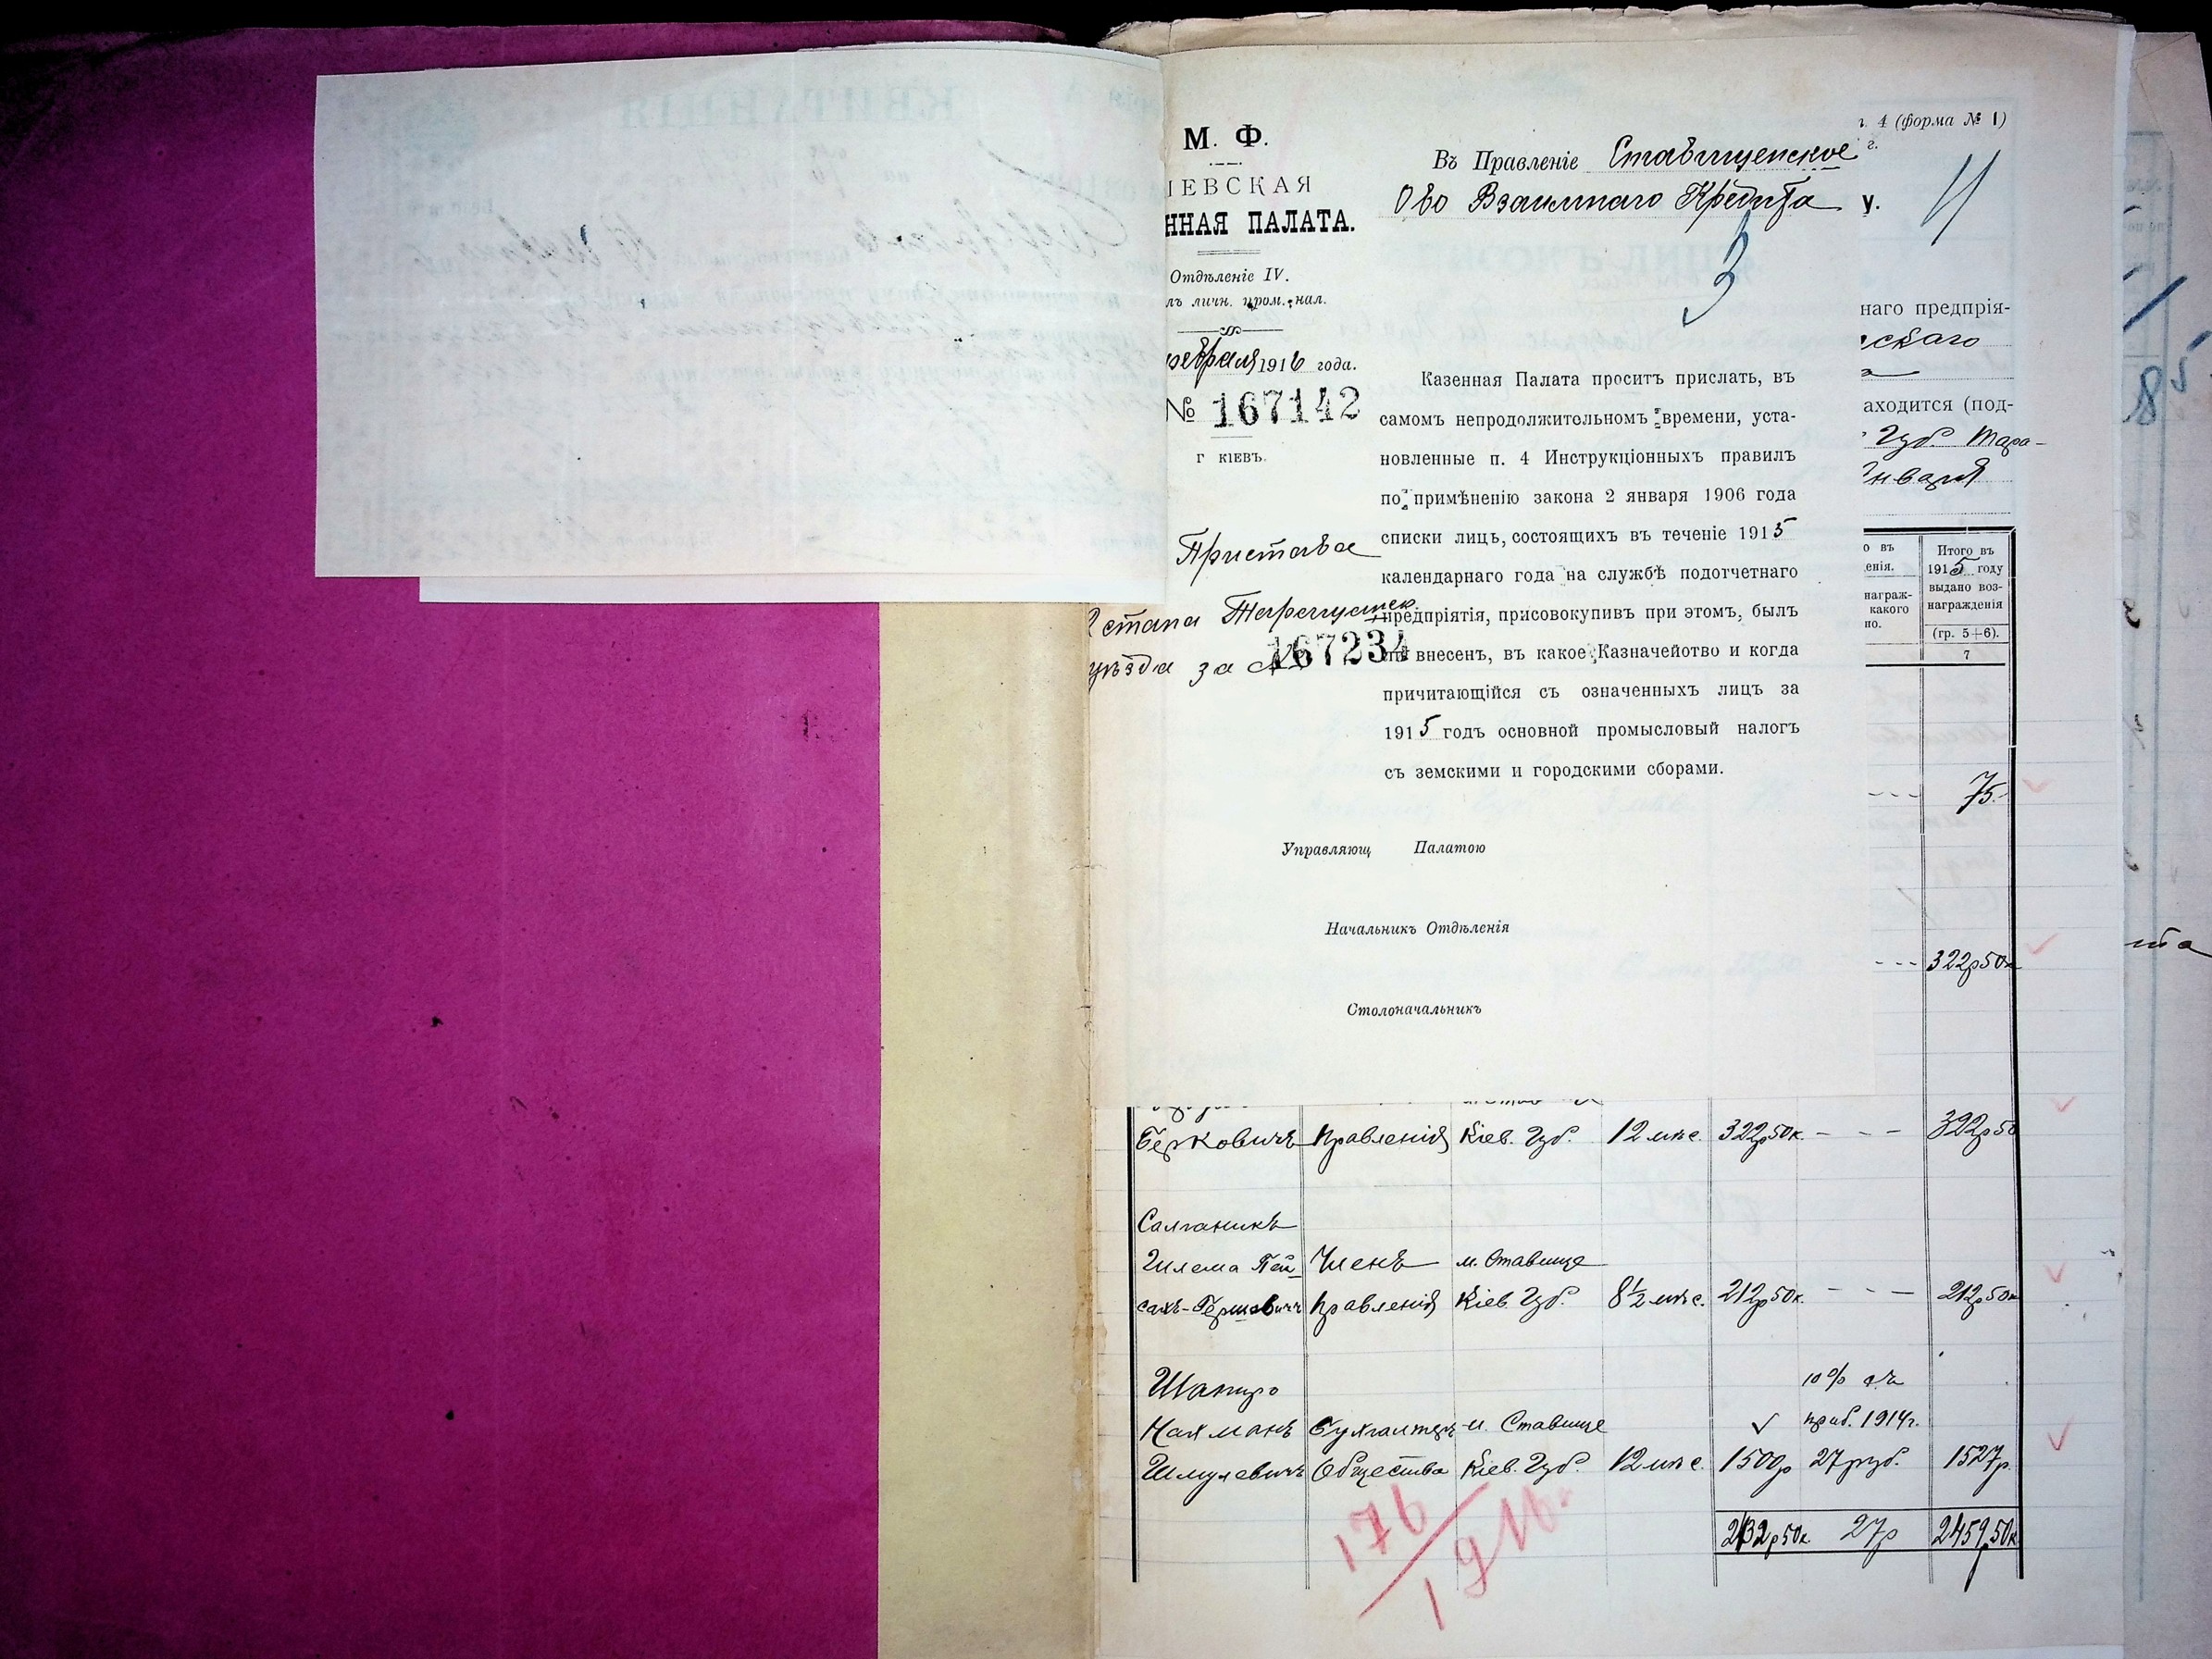 М. Ф.
ІЕВСКАЯ
ННАЯ ПАЛАТА.
Отдѣленіе IV.
лъ личн. пром. нал.
февраля 1916 года.
№ 167142
г КІЕВЪ.
Пристава
2 стана Таращанск.
уѣзда за №
167234
Въ Правленіе Ставищенское
О-во Взаимнаго Кредита
3
Казенная Палата проситъ прислать, въ
самомъ непродолжительномъ времени, уста-
новленные п. 4 Инструкціонныхъ правилъ
по примѣненію закона 2 января 1906 года
списки лицъ, состоящихъ въ теченіе 1915
календарнаго года на службѣ подотчетнаго
предпріятія, присовокупивъ при этомъ, былъ
внесенъ, въ какое Казначейство и когда
причитающійся съ означенныхъ лицъ за
1915 годъ основной промысловый налогъ
съ земскими и городскими сборами.
Управляющ Палатою
Начальникъ Отдѣленія
Столоначальникъ
г. 4 (форма № 1)
г.
у.
4
наго предпрія-
скаго
аходится (под-
Губ. Тара-
Января
о въ
енія.
награж-
какого
но.
Итого въ
1915 году
выдано воз-
награжденія
(гр. 5+6).
7
75.-
322р50к
Берковичъ Правленія Кіев. Губ. 12 мѣс. 322р50к. - - - 322р50
Салганикъ
Шлема Пей- Членъ м. Ставище
сахъ-Гершовичъ Правленія Кіев. Губ. 8½ мѣс. 212р50к. - - - 212р50к
Шапиро 10% съ
Нахманъ Бухгалтеръ м. Ставище приб. 1914г.
Шмулевичъ Общества Кіев. Губ. 12 мѣс. 1500р 27 руб. 1527р.
2132р50к. 27р 2459р50к
176
1916
85